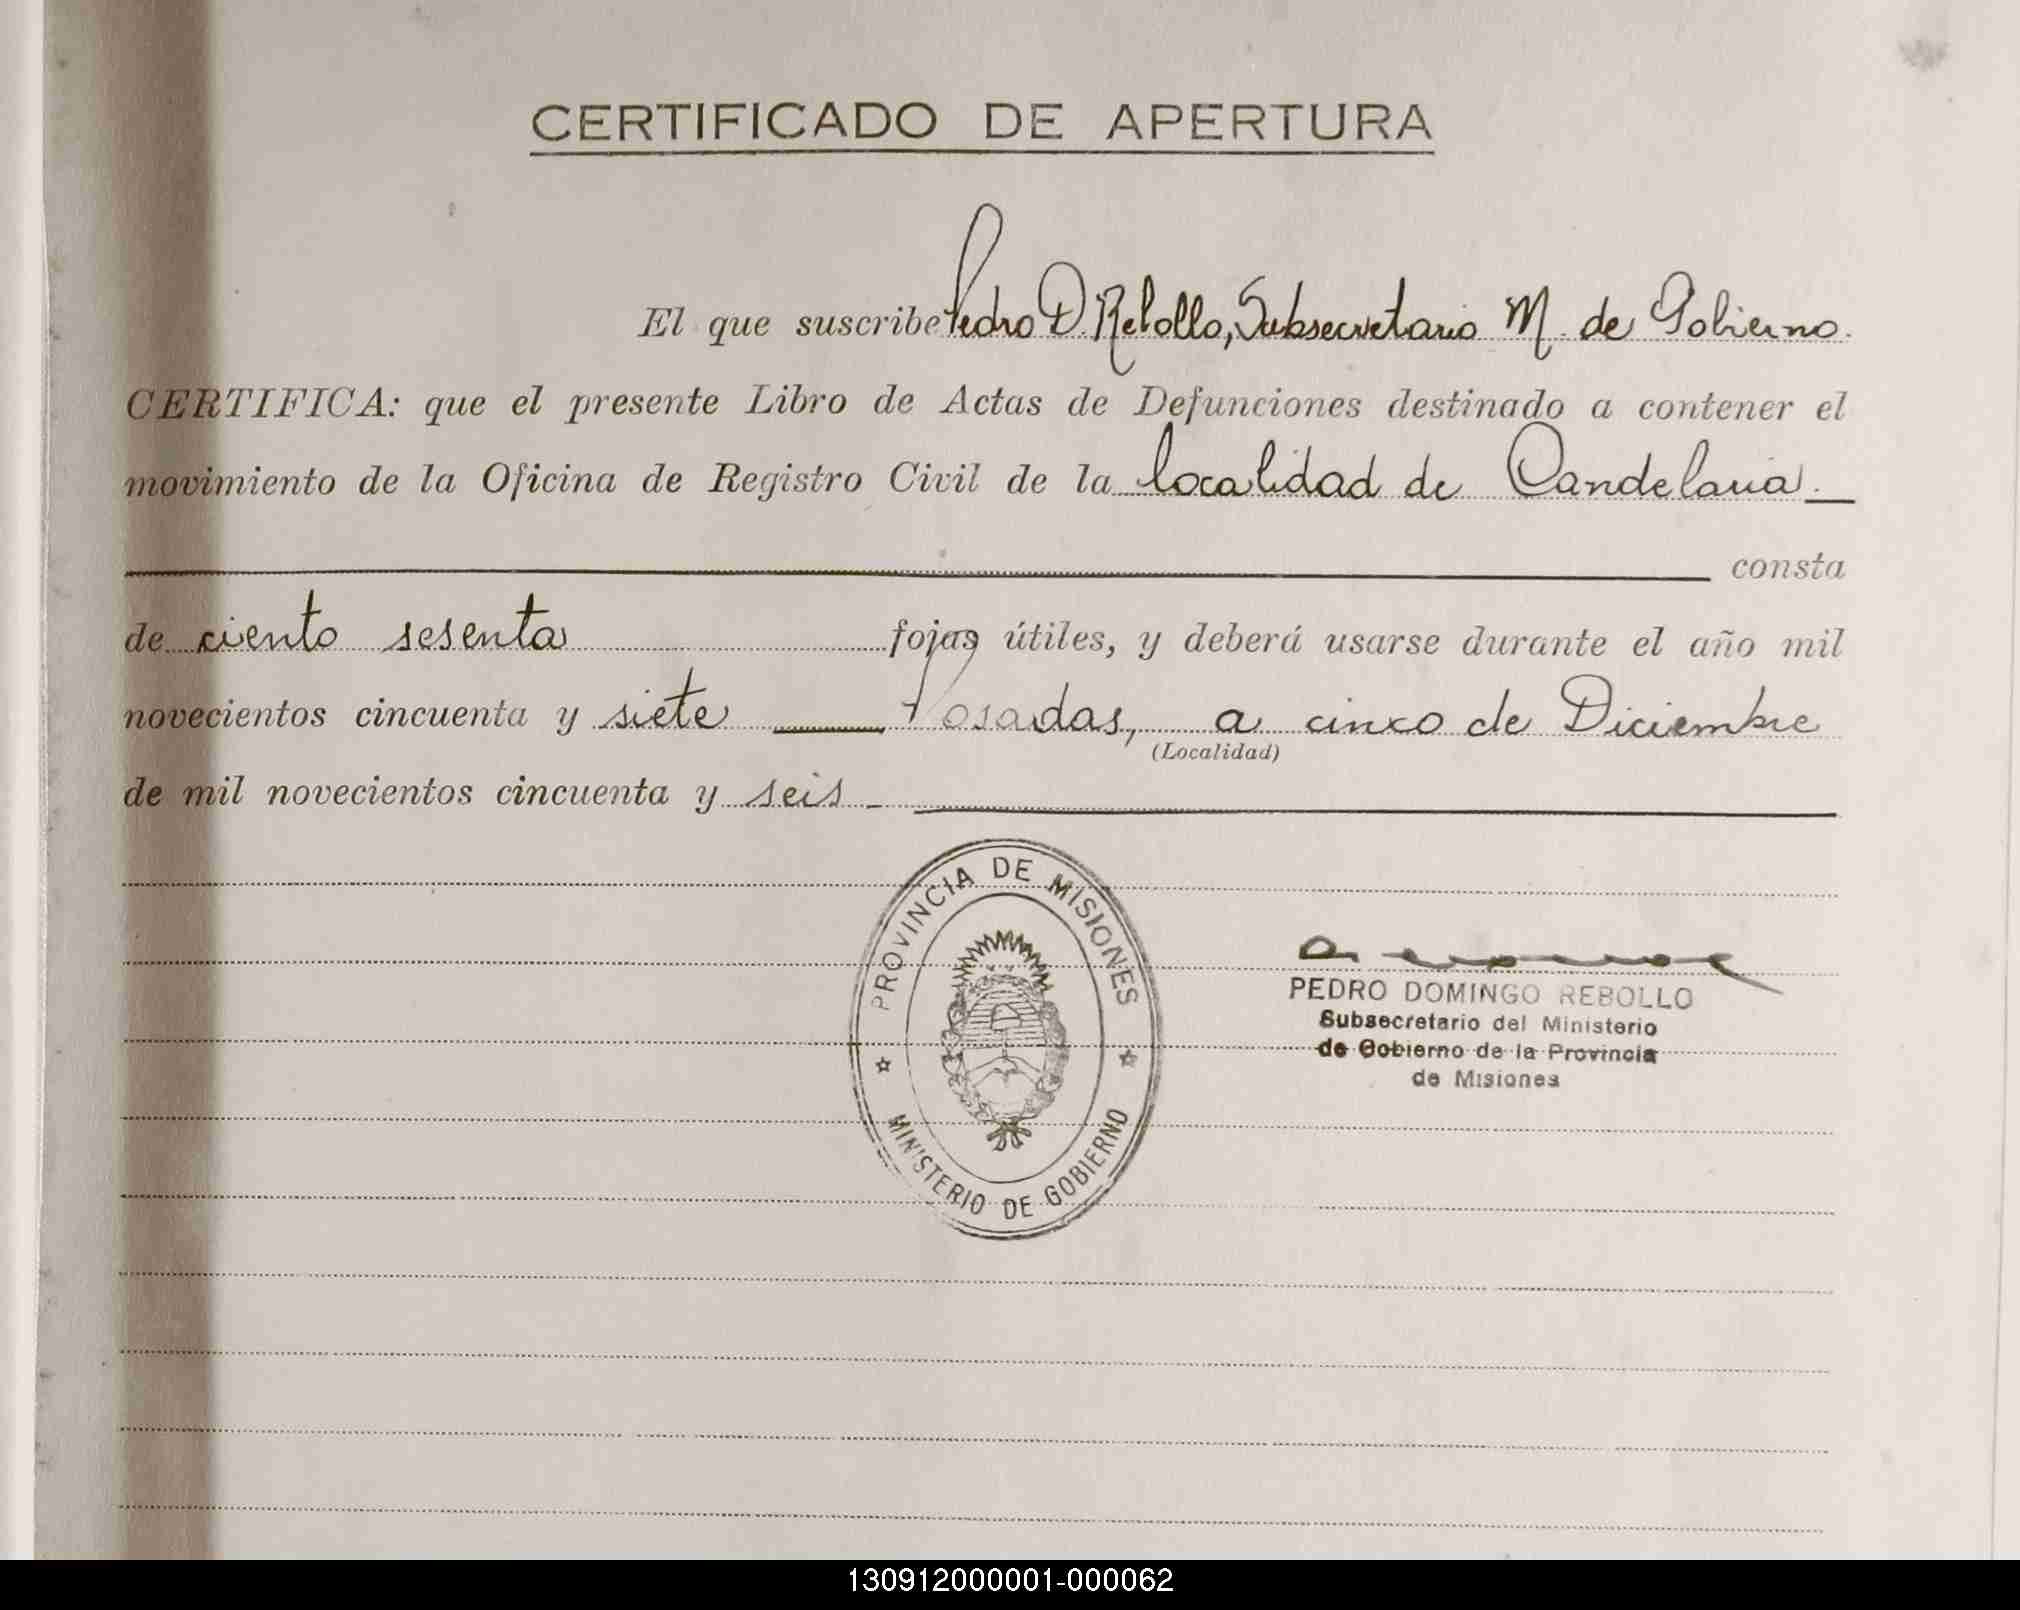 CERTIFICADO DE APERTURA
El que suscribe Pedro D. Rebollo, Subsecretario M. de Gobierno.
CERTIFICA: que el presente Libro de Actas de Defunciones destinado a contener el
movimiento de la Oficina de Registro Civil de la localidad de Candelaria.
consta
de ciento sesenta fojas útiles, y deberá usarse durante el año mil
novecientos cincuenta y siete Posadas, a cinco de Diciembre
(Localidad)
de mil novecientos cincuenta y seis
PROVINCIA DE MISIONES
MINISTERIO DE GOBIERNO
PEDRO DOMINGO REBOLLO
Subsecretario del Ministerio
de Gobierno de la Provincia
de Misiones
130912000001-000062